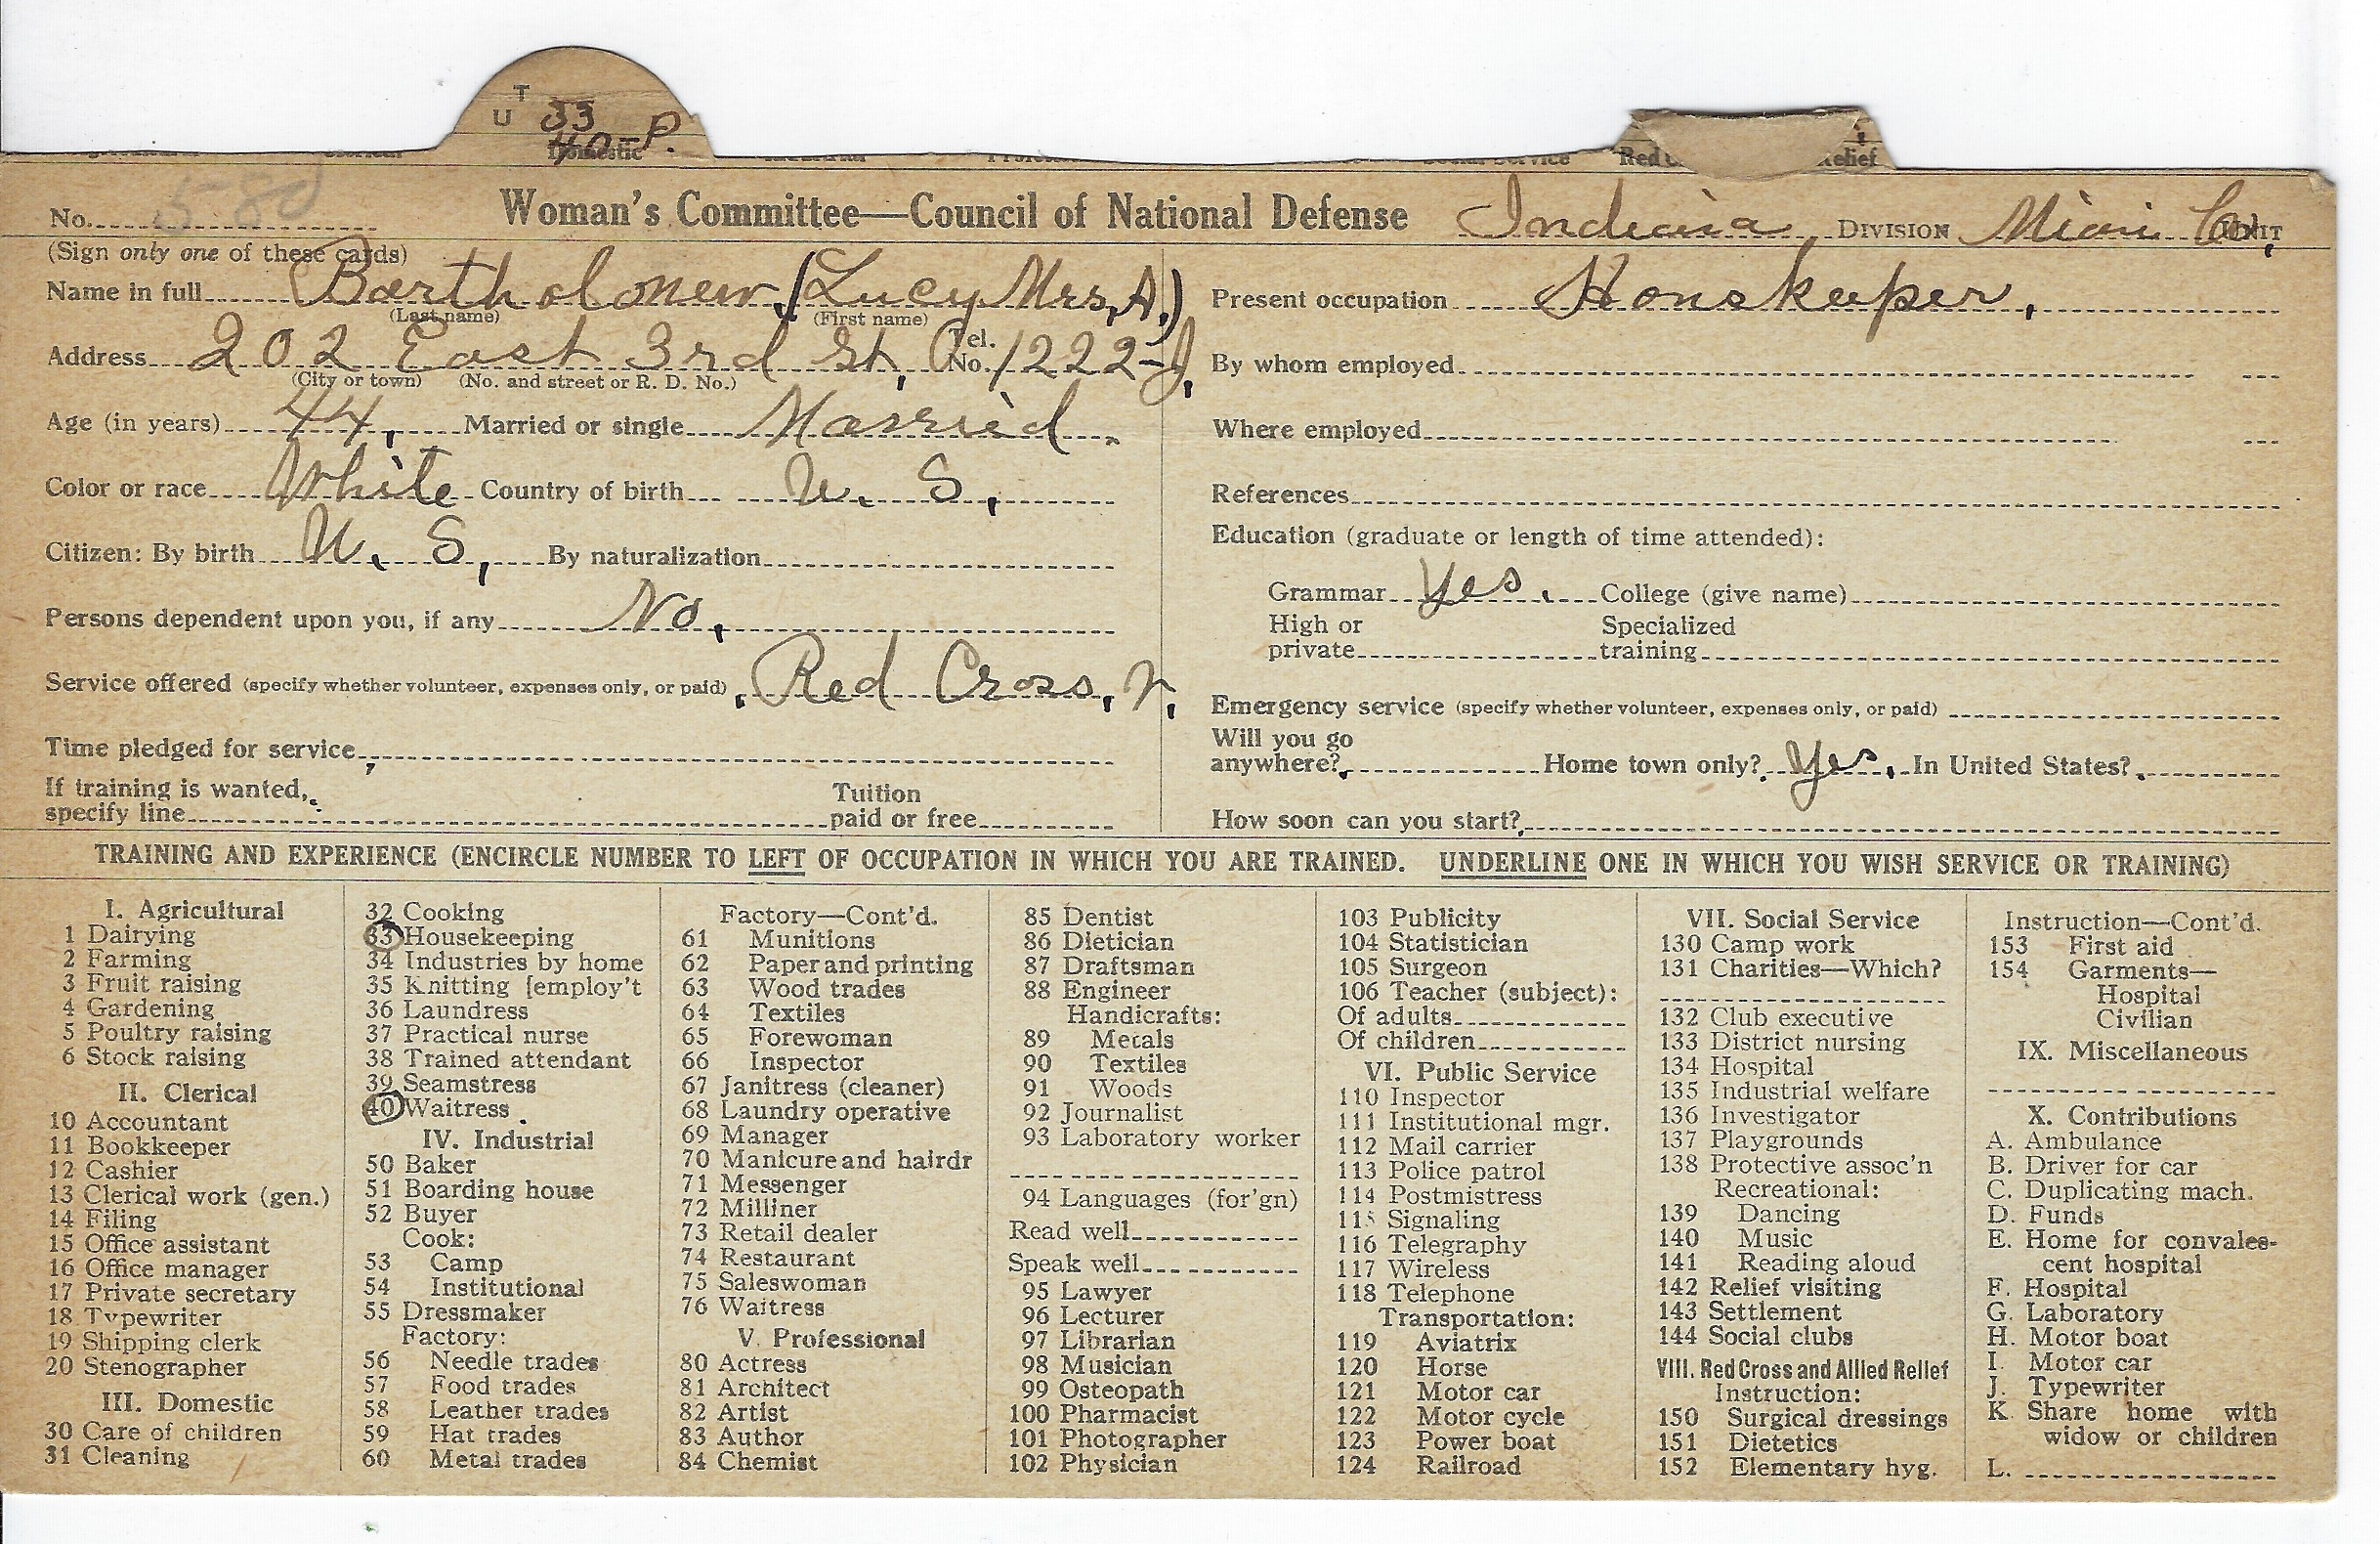 T
U 33
40-P.
Domestic
Social Service Red elief
No. 580 Woman's Committee—Council of National Defense Indiana DIVISION Miami Co., UNIT
(Sign only one of these cards)
Name in full Bartholomew, (Lucy Mrs, A,)
(Last name) (First name)
Address 202 East 3rd St, Tel. No. 1222-J,
(City or town) (No. and street or R. D. No.)
Age (in years) 44, Married or single Married
Color or race White Country of birth U. S,
Citizen: By birth U. S, By naturalization
Persons dependent upon you, if any No,
Service offered (specify whether volunteer, expenses only, or paid) Red Cross, V,
Time pledged for service
If training is wanted,
specify line
Tuition
paid or free
Present occupation Houskeeper,
By whom employed
Where employed
References
Education (graduate or length of time attended):
Grammar Yes. College (give name)
High or
private
Specialized
training
Emergency service (specify whether volunteer, expenses only, or paid)
Will you go
anywhere? Home town only? Yes. In United States?
How soon can you start?
TRAINING AND EXPERIENCE (ENCIRCLE NUMBER TO LEFT OF OCCUPATION IN WHICH YOU ARE TRAINED. UNDERLINE ONE IN WHICH YOU WISH SERVICE OR TRAINING)
I. Agricultural
1 Dairying
2 Farming
3 Fruit raising
4 Gardening
5 Poultry raising
6 Stock raising
II. Clerical
10 Accountant
11 Bookkeeper
12 Cashier
13 Clerical work (gen.)
14 Filing
15 Office assistant
16 Office manager
17 Private secretary
18 Typewriter
19 Shipping clerk
20 Stenographer
III. Domestic
30 Care of children
31 Cleaning
32 Cooking
33 Housekeeping
34 Industries by home
35 Knitting [employ't
36 Laundress
37 Practical nurse
38 Trained attendant
39 Seamstress
40 Waitress
IV. Industrial
50 Baker
51 Boarding house
52 Buyer
Cook:
53 Camp
54 Institutional
55 Dressmaker
Factory:
56 Needle trades
57 Food trades
58 Leather trades
59 Hat trades
60 Metal trades
Factory—Cont'd.
61 Munitions
62 Paper and printing
63 Wood trades
64 Textiles
65 Forewoman
66 Inspector
67 Janitress (cleaner)
68 Laundry operative
69 Manager
70 Manicure and hairdr
71 Messenger
72 Milliner
73 Retail dealer
74 Restaurant
75 Saleswoman
76 Waitress
V. Professional
80 Actress
81 Architect
82 Artist
83 Author
84 Chemist
85 Dentist
86 Dietician
87 Draftsman
88 Engineer
Handicrafts:
89 Metals
90 Textiles
91 Woods
92 Journalist
93 Laboratory worker
94 Languages (for'gn)
Read well
Speak well
95 Lawyer
96 Lecturer
97 Librarian
98 Musician
99 Osteopath
100 Pharmacist
101 Photographer
102 Physician
103 Publicity
104 Statistician
105 Surgeon
106 Teacher (subject):
Of adults
Of children
VI. Public Service
110 Inspector
111 Institutional mgr.
112 Mail carrier
113 Police patrol
114 Postmistress
115 Signaling
116 Telegraphy
117 Wireless
118 Telephone
Transportation:
119 Aviatrix
120 Horse
121 Motor car
122 Motor cycle
123 Power boat
124 Railroad
VII. Social Service
130 Camp work
131 Charities—Which?
132 Club executive
133 District nursing
134 Hospital
135 Industrial welfare
136 Investigator
137 Playgrounds
138 Protective assoc'n
Recreational:
139 Dancing
140 Music
141 Reading aloud
142 Relief visiting
143 Settlement
144 Social clubs
VIII. Red Cross and Allied Relief
Instruction:
150 Surgical dressings
151 Dietetics
152 Elementary hyg.
Instruction—Cont'd.
153 First aid
154 Garments—
Hospital
Civilian
IX. Miscellaneous
X. Contributions
A. Ambulance
B. Driver for car
C. Duplicating mach.
D. Funds
E. Home for convales-
cent hospital
F. Hospital
G. Laboratory
H. Motor boat
I. Motor car
J. Typewriter
K Share home with
widow or children
L.